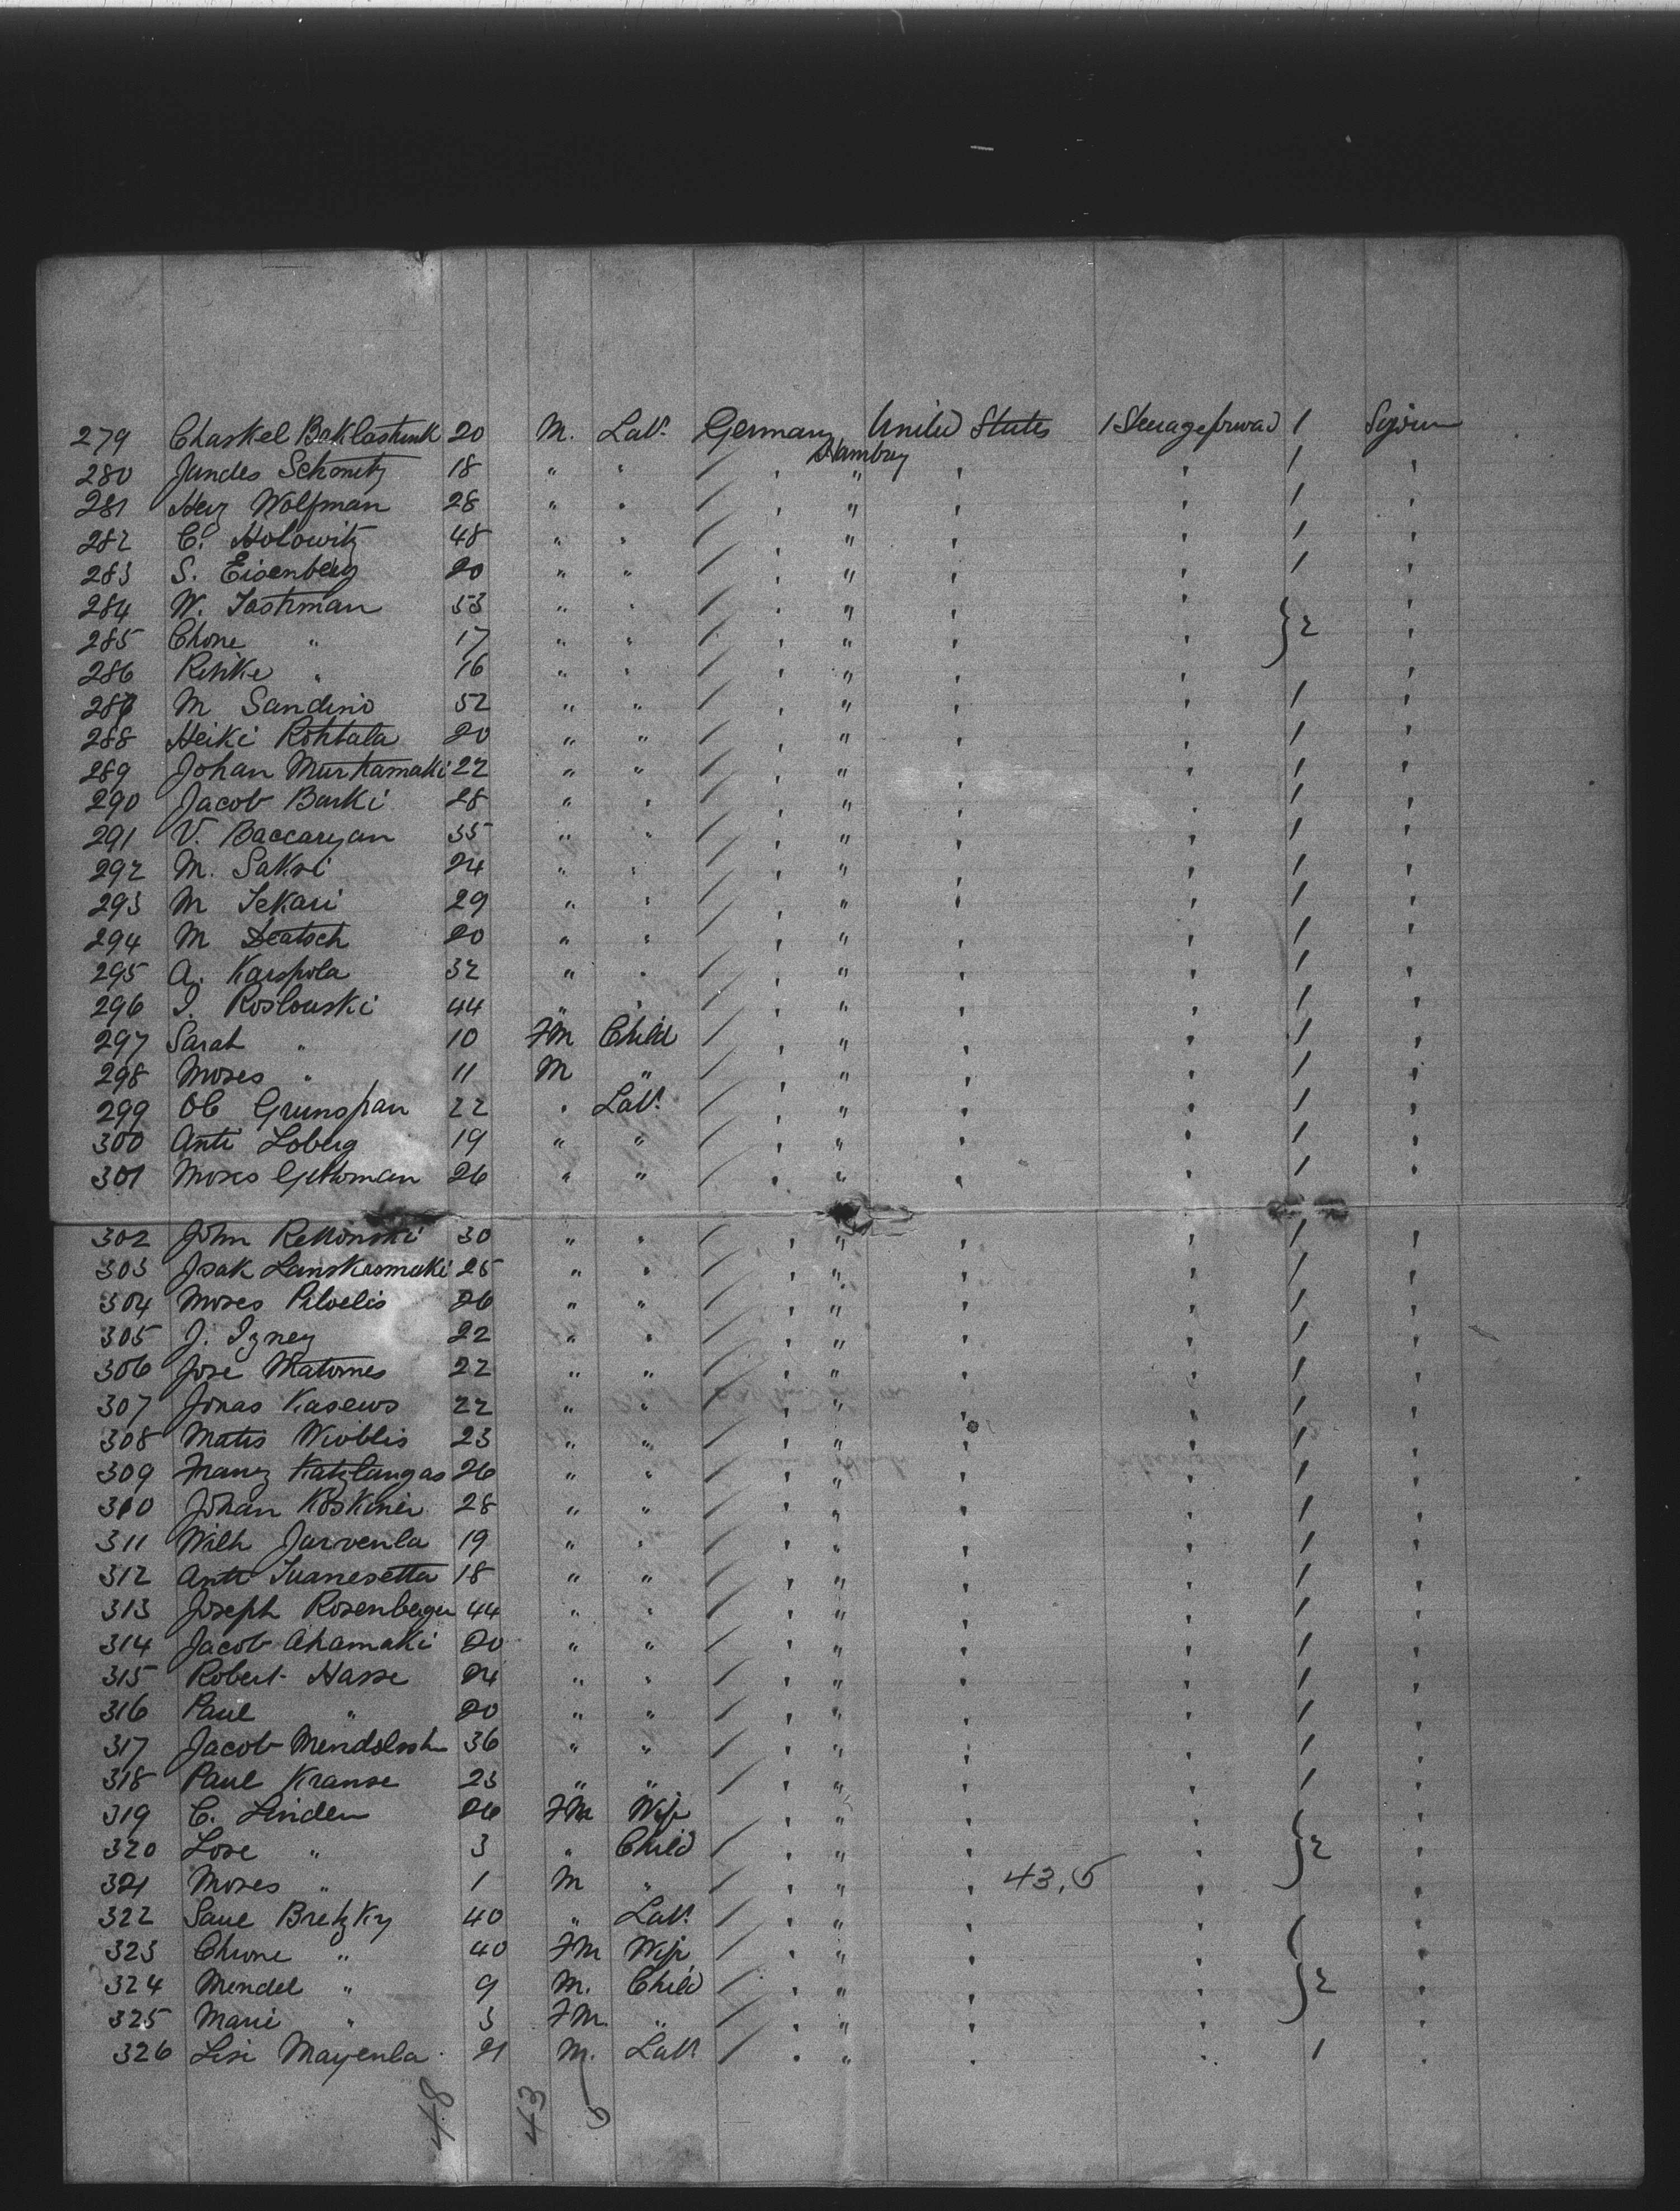 279 Chaskel Baklastunk 20 M. Lab. Germany United States 1 Steerage forward 1 Sojourn
Hamburg
280 Jundes Schonitz 18 " " / , " , , 1 ,
281 Herz Wolfman 28 " " / , " , , 1 ,
282 C. Holowitz 48 " " / , " , , 1 ,
283 S. Eisenberg 20 " " / , " , , 1 ,
284 W. Tastman 53 " " / , " , , ,
285 Chone " 17 " " / , " , , } 2 ,
286 Rifke " 16 " " / , " , , ,
287 M Sandino 52 " " / , " , , 1 ,
288 Heiki Rohtala 20 " " / , " , , 1 ,
289 Johan Murhamaki 22 " " / , " , , 1 ,
290 Jacob Burki 28 " " / , " , , 1 ,
291 V. Baccaryan 35 " " / , " , , 1 ,
292 M. Saksi 24 " " / , " , , 1 ,
293 M Sekari 29 " " / , " , , 1 ,
294 M Deatsch 20 " " / , " , , 1 ,
295 A. Karspola 32 " " / , " , , 1 ,
296 I. Roslouski 44 " " / , " , , 1 ,
297 Sarah " 10 FM Child / , " , , 1 ,
298 Moses " 11 M " / , " , , 1 ,
299 Ob Grunspan 22 " Lab. / , " , , 1 ,
300 Anti Loberg 19 " " / , " , , 1 ,
301 Moses Guthman 26 " " / , " , , 1 ,
302 John Rekonski 30 " " / , " , , 1 ,
303 Isak Lanskaomaki 25 " " / , " , , 1 ,
304 Moses Pilvelis 26 " " / , " , , 1 ,
305 J. Izney 22 " " / , " , , 1 ,
306 Jose Matomes 22 " " / , " , , 1 ,
307 Jonas Kasews 22 " " / , " , , 1 ,
308 Matis Wioblis 23 " " / , " , , 1 ,
309 Franz Katzlangas 26 " " / , " , , 1 ,
310 Johan Koskinen 28 " " / , " , , 1 ,
311 Wilh Jarvenla 19 " " / , " , , 1 ,
312 Anti Iuanesetta 18 " " / , " , , 1 ,
313 Joseph Rosenberger 44 " " / , " , , 1 ,
314 Jacob Ahamaki 20 " " / , " , , 1 ,
315 Robert Hasse 24 " " / , " , , 1 ,
316 Paul " 20 " " / , " , , 1 ,
317 Jacob Mendelssh 36 " " / , " , , 1 ,
318 Paul Krause 23 " " / , " , , 1 ,
319 C. Linden 26 FM Wife / , " , , ,
320 Lose " 3 " Child / , " , , } 2 ,
321 Moses " 1 M " / , " , 43,5 , ,
322 Saul Bretzky 40 " Lab. / , " , , ,
323 Chione " 40 FM Wife / , " , , ,
324 Mendel " 9 M. Child / , " , , } 2 ,
325 Mari " 3 FM. " / , " , , ,
326 Lisi Mayenla 21 M. Lab. / , " , , 1 ,
48 43 5